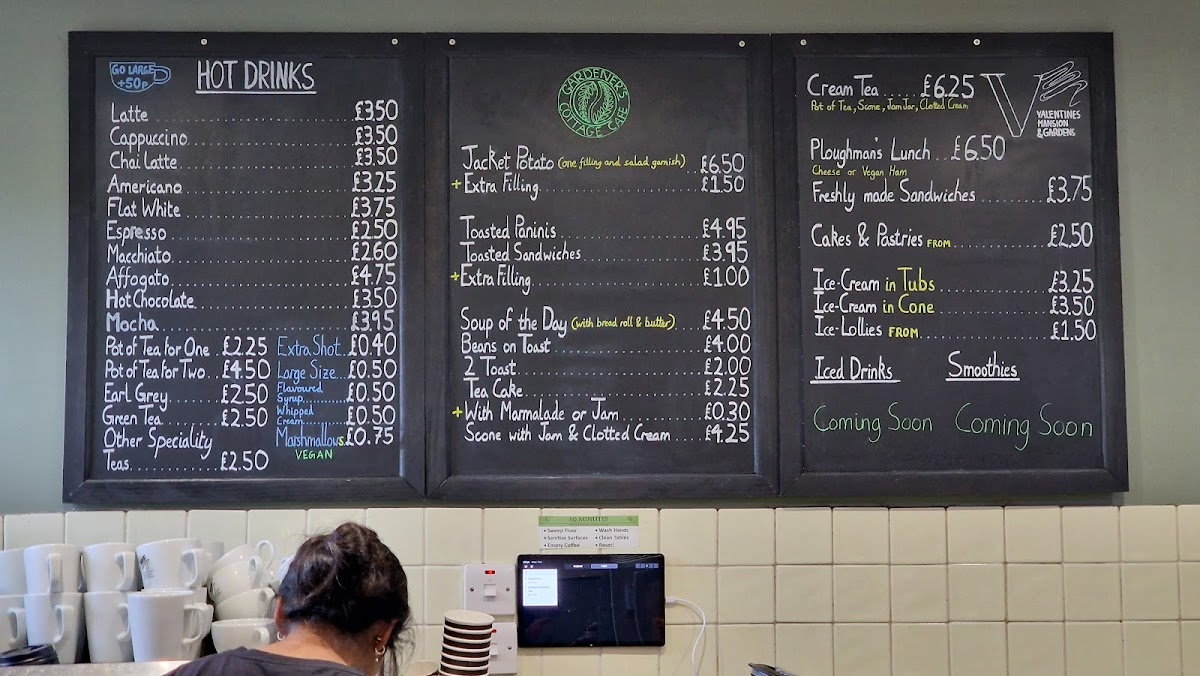 GO LARGE
+50P
HOT DRINKS
Latte £3.50
Cappuccino £3.50
Chai Latte £3.50
Americano £3.25
Flat White £3.75
Espresso £2.50
Macchiato £2.60
Affogato £4.75
Hot Chocolate £3.50
Mocha £3.95
Pot of Tea for One £2.25
Pot of Tea for Two £4.50
Earl Grey £2.50
Green Tea £2.50
Other Speciality
Teas £2.50
Extra Shot £0.40
Large Size £0.50
Flavoured
Syrup £0.50
Whipped
Cream £0.50
Marshmallows £0.75
VEGAN
GARDENER'S
COTTAGE CAFE
Jacket Potato (one filling and salad garnish) £6.50
+ Extra Filling £1.50
Toasted Paninis £4.95
Toasted Sandwiches £3.95
+ Extra Filling £1.00
Soup of the Day (with bread roll & butter) £4.50
Beans on Toast £4.00
2 Toast £2.00
Tea Cake £2.25
+ With Marmalade or Jam £0.30
Scone with Jam & Clotted Cream £4.25
Cream Tea £6.25
Pot of Tea, Scone, Jam Jar, Clotted Cream
V
VALENTINES
MANSION
& GARDENS
Ploughman's Lunch £6.50
Cheese or Vegan Ham
Freshly made Sandwiches £3.75
Cakes & Pastries FROM £2.50
Ice-Cream in Tubs £3.25
Ice-Cream in Cone £3.50
Ice-Lollies FROM £1.50
Iced Drinks
Smoothies
Coming Soon
Coming Soon
60 MINUTES
• Sweep Floor
• Sanitise Surfaces
• Empty Coffee
• Wash Hands
• Clean Tables
• Reset!